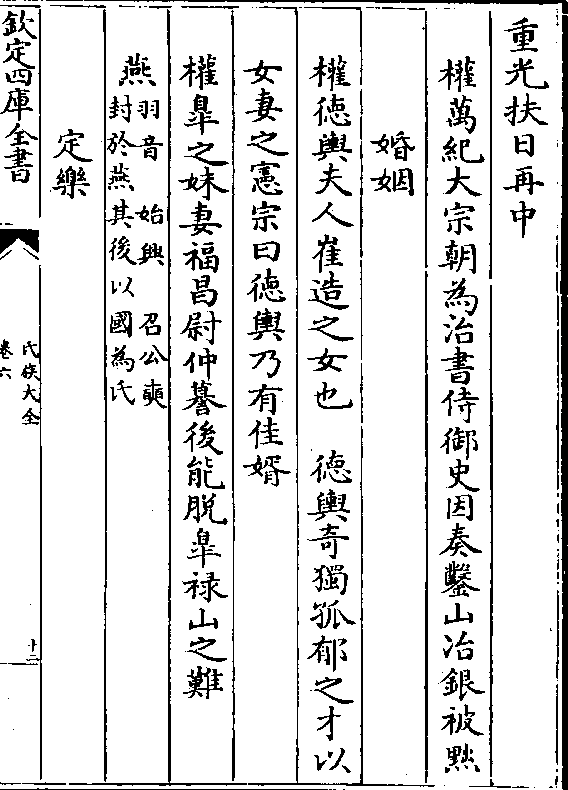 重光扶日再中
權萬紀大宗朝為治書侍御史因奏鑿山冶銀被黜
婚姻
權徳輿夫人崔造之女也　徳輿奇獨孤郁之才以
女妻之憲宗曰徳輿乃有佳婿
權臯之妹妻福昌尉仲謩後能脱臯禄山之難
燕羽音　始興　召公奭
封於燕其後以國為氏
定樂
欽定四庫全書
氏族大全
卷六
十二